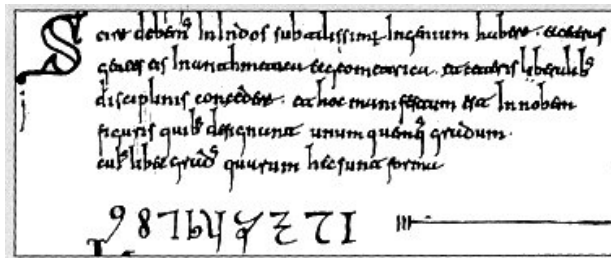 Scire debemus Inindos subtilissimum Ingenium habere. et ceteras
gentes eis Inarithmetica et geometrica. et ceteris liberalibus
disciplinis concedere. et hoc manifestum est Innobem
figuris quibus designant unumquemque gradum.
cuiuslibet gradus quarum hec sunt forma
9 8 7 6 5 4 3 2 1